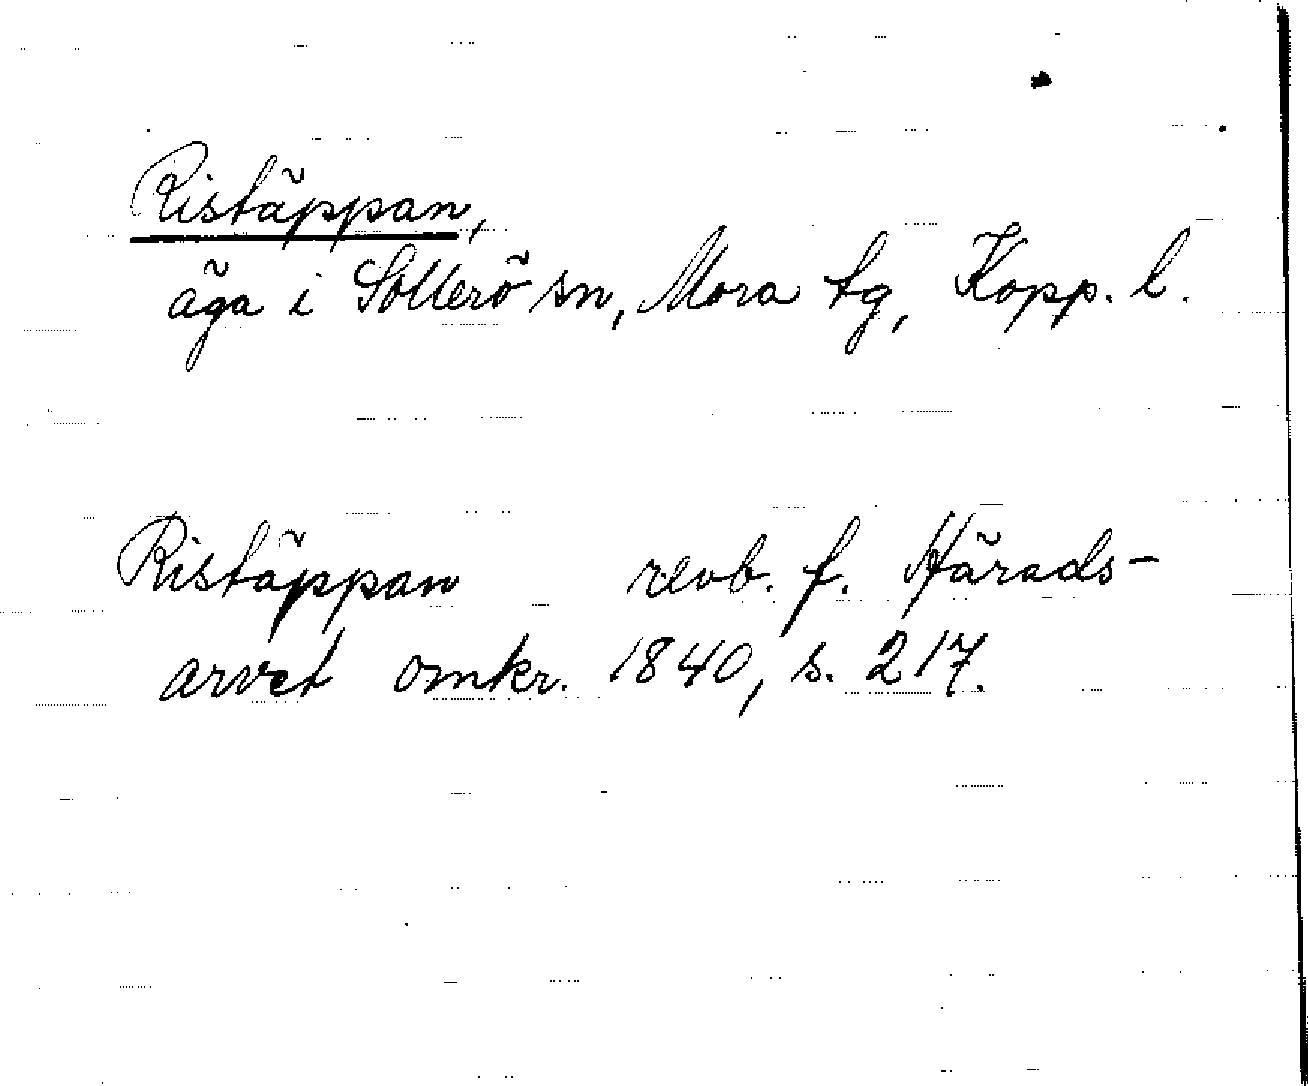 Ristäppan,
äga i Sollerö sn, Mora tg, Kopp. l.
Ristäppan revb. f. Härads-
arvet omkr. 1840, s. 217.